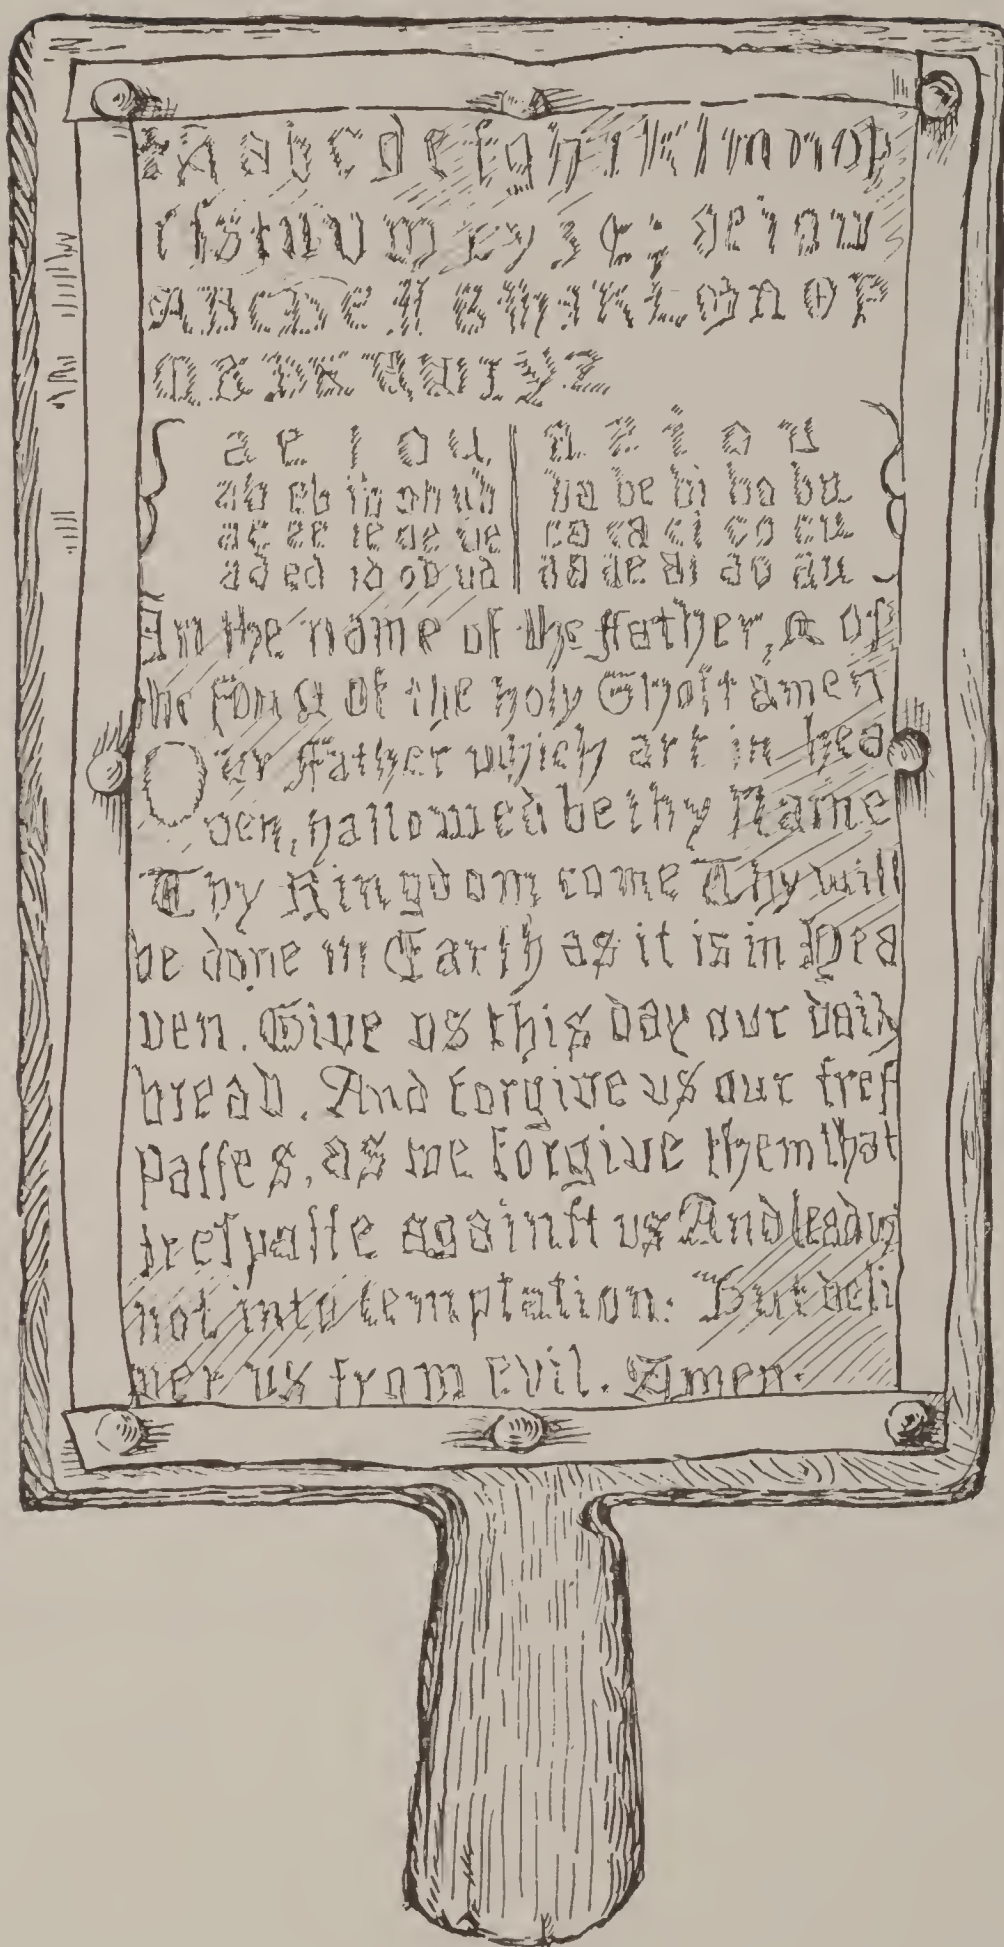 ✠ A a b c d e f g h i k l m n o p
r ſ s t u v w x y z & : a e i o u
A B C D E F G H I K L M N O P
Q R S T U W X Y Z
a e i o u | a e i o u
ab eb ib ob ub | ba be bi bo bu
ac ec ic oc uc | ca ce ci co cu
ad ed id od ud | da de di do du
In the name of the ffather, & of
the ſon, & of the holy Ghoſt amen
Our ffather which art in hea
ven, hallowed be thy Name
Thy Kingdom come Thy will
be done in Earth as it is in Hea
ven. Give us this day our daily
bread. And forgive us our treſ
paſſes, as we forgive them that
treſpaſſe againſt us And lead us
not into temptation: But deli
ver us from Evil. Amen.